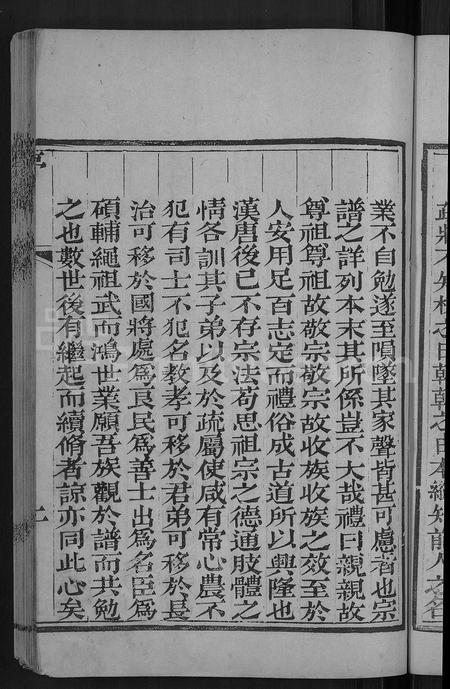 業不自勉遂至隕墜其家聲皆甚可慮者也宗
譜之詳列本末其所係豈不大哉禮曰親親故
尊祖尊祖故敬宗敬宗故收族收族之效至於
人安用足百志定而禮俗成古道所以興隆也
漢唐後已不存宗法苟思祖宗之德通肢體之
情各訓其子弟以及於疏屬使咸有常心農不
犯有司士不犯名教孝可移於君弟可移於長
治可移於國將處爲良民爲善士出爲名臣爲
碩輔繩祖武而鴻世業願吾族觀於譜而共勉
之也數世後有繼起而續脩者諒亦同此心矣
二